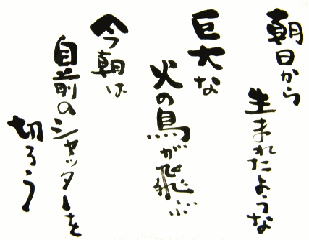 朝日から
生まれたような
巨大な
火の鳥が飛ぶ
今朝は
自前のシャッターを
切ろう